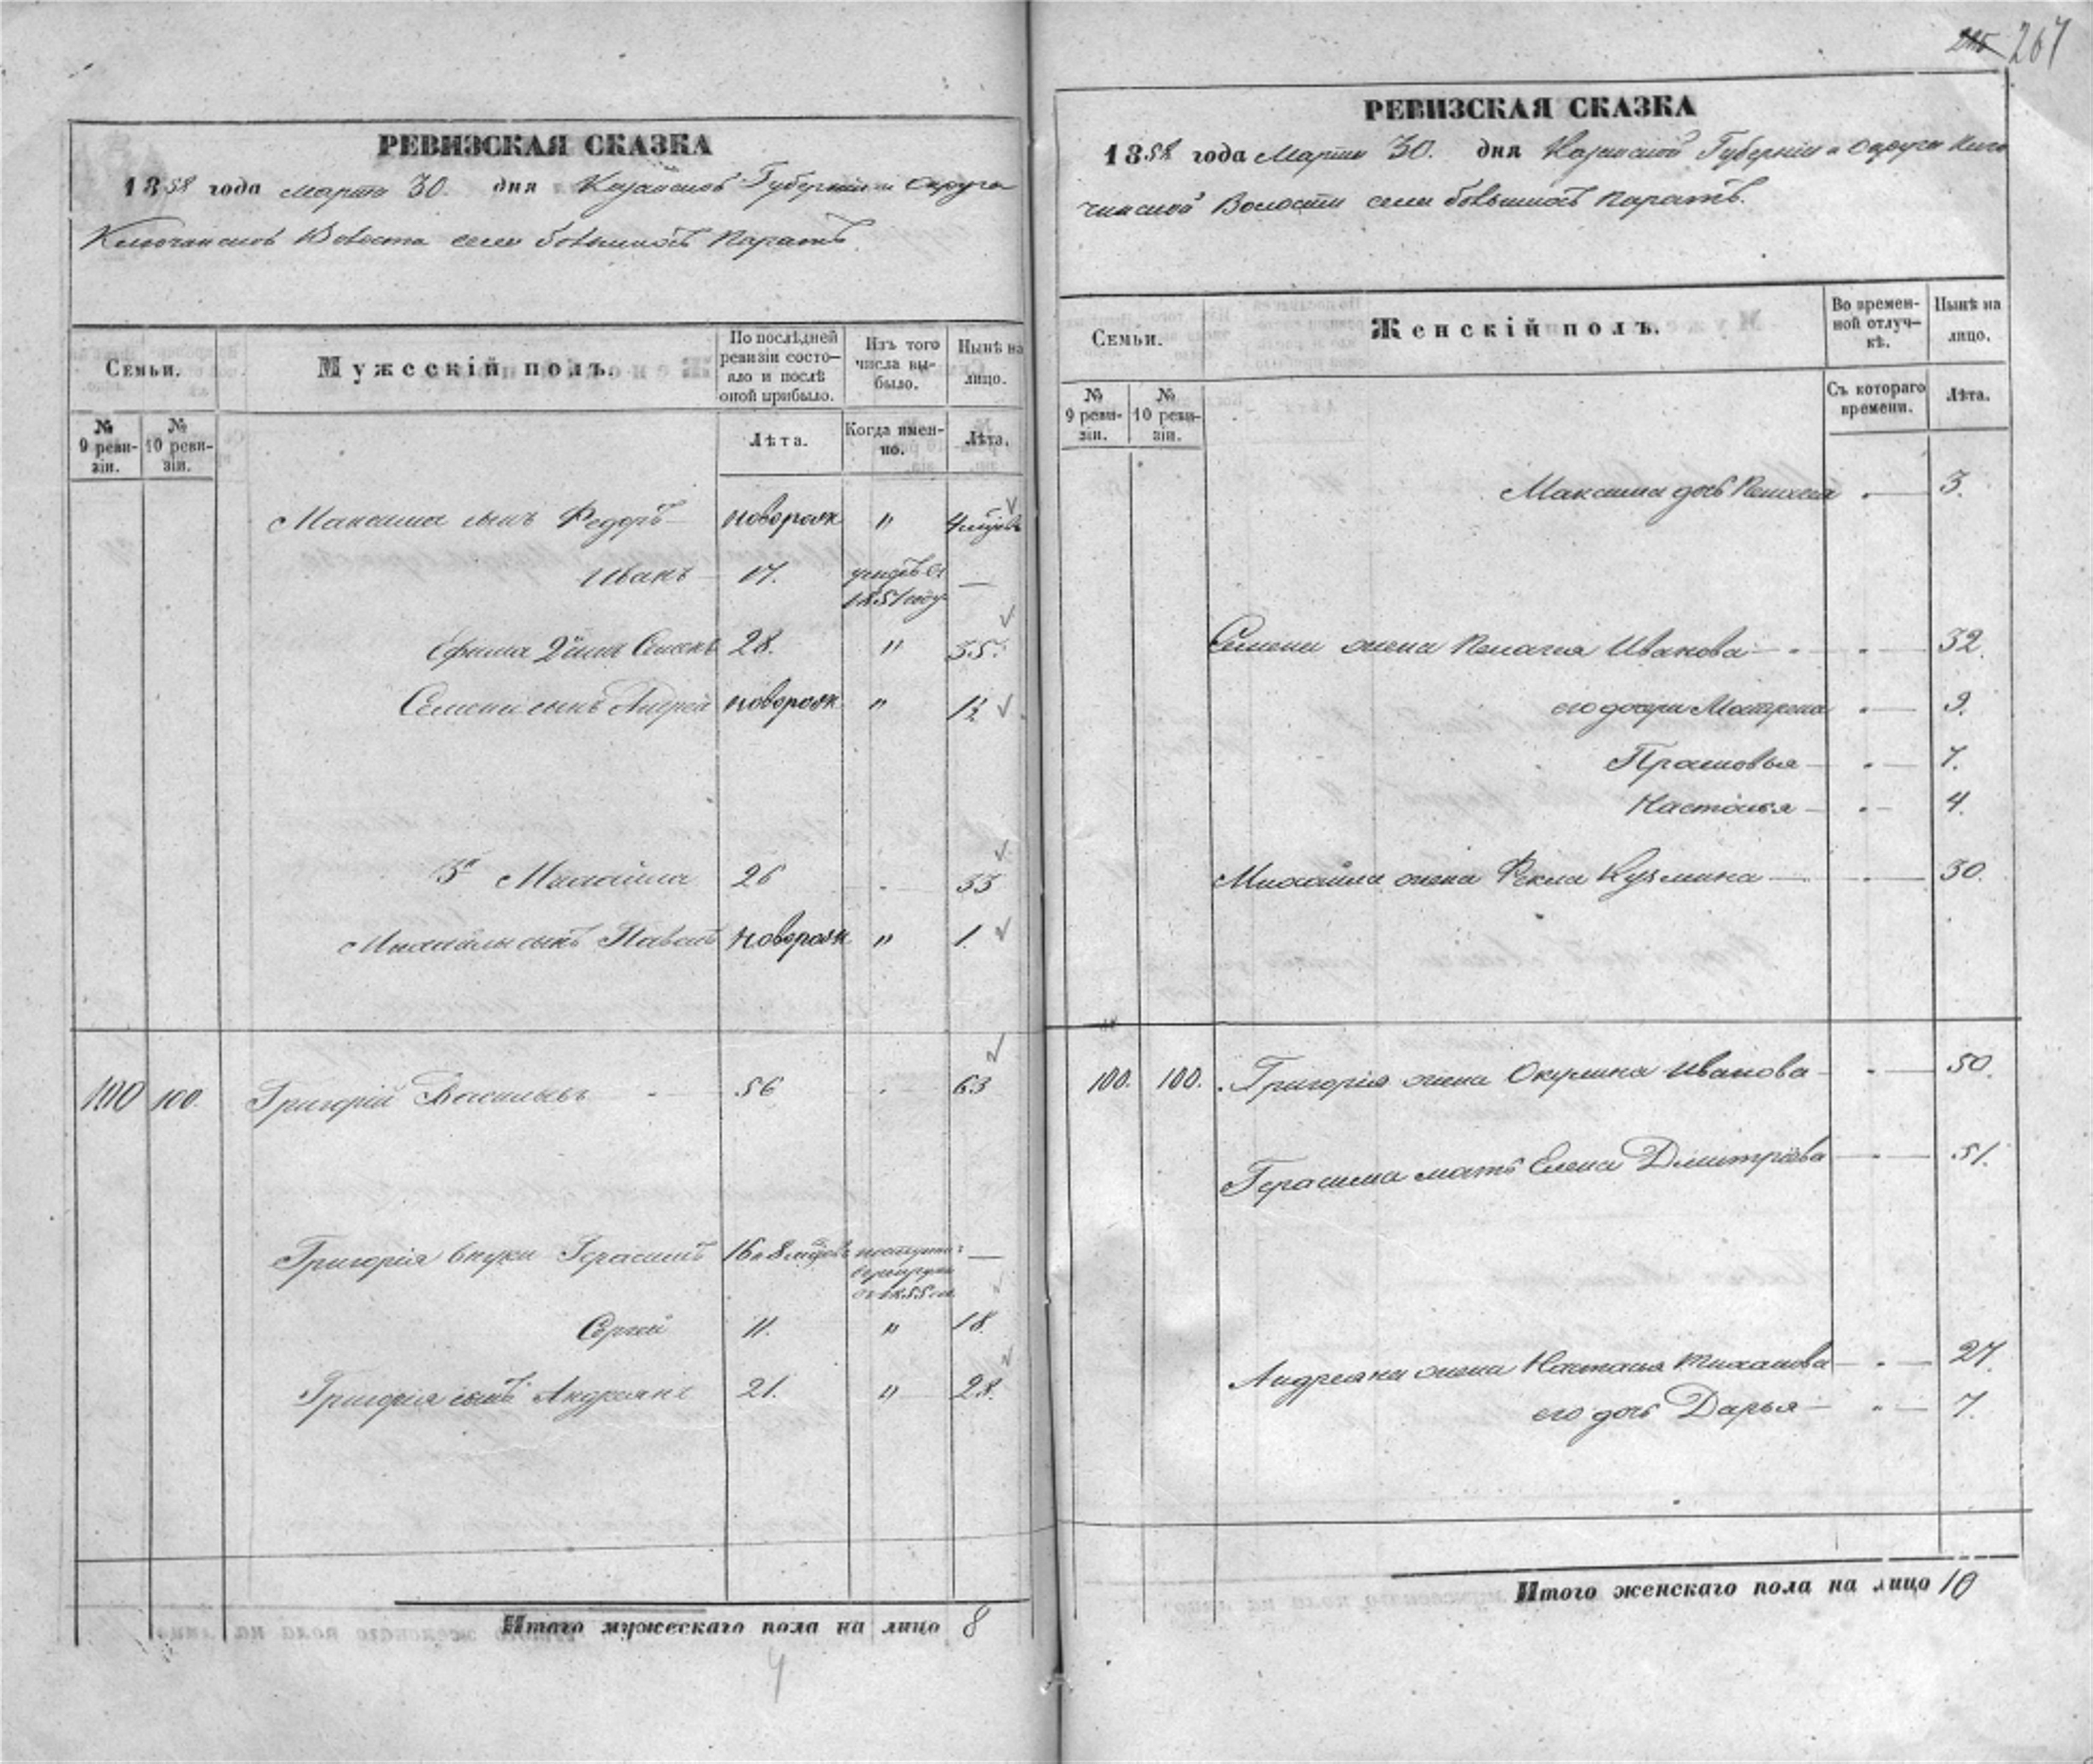 267
РЕВИЗСКАЯ СКАЗКА
1858 года Марта 30. дня Казанской Губерніи и Округа
Ключинской Волости села большихъ Паратъ.
Семьи.
Мужескій полъ.
По послѣдней ревизіи состо-
яло и послѣ
оной прибыло.
Изъ того
числа вы-
было.
Нынѣ на
лицо.
№
9 реви-
зіи.
№
10 реви-
зіи.
Лѣта.
Когда имен-
но.
Лѣта.
Максима сынъ Федоръ новорож " 4
Иванъ 17. 1851 году —
Ефима 2й сынъ Семенъ 28. " 35.
Семена сынъ Андрей новорож " 1½
3й Михайла 26 33
Михайлы сынъ Павелъ новорож " 1.
100 100. Григорій Васильевъ 56 63
Григорія внуки Герасимъ 16 и 8 —
Сергей 11. " 18.
Григорія сынъ Андреянъ 21. " 28.
Итого мужескаго пола на лицо 8
4
РЕВИЗСКАЯ СКАЗКА
1858 года Марта 30. дня Казанской Губерніи и Округа Клю
чинской Волости села большихъ Паратъ.
Семьи.
Женскій полъ.
Во времен-
ной отлуч-
кѣ.
Нынѣ на
лицо.
№
9 реви-
зіи.
№
10 реви-
зіи.
Съ котораго
времени.
Лѣта.
Максима дочь Пелагея 3.
Семена жена Пелагея Иванова 32.
его дочери Матрена 9.
Прасковья 7.
Настасья 4.
Михайла жена Фекла Кузмина 30.
100. 100. Григорія жена Окулина Иванова 50.
Герасима мать Елена Дмитріева 51.
Андреяна жена Настасья Михайлова 27.
его дочь Дарья 7.
Итого женскаго пола на лицо 10